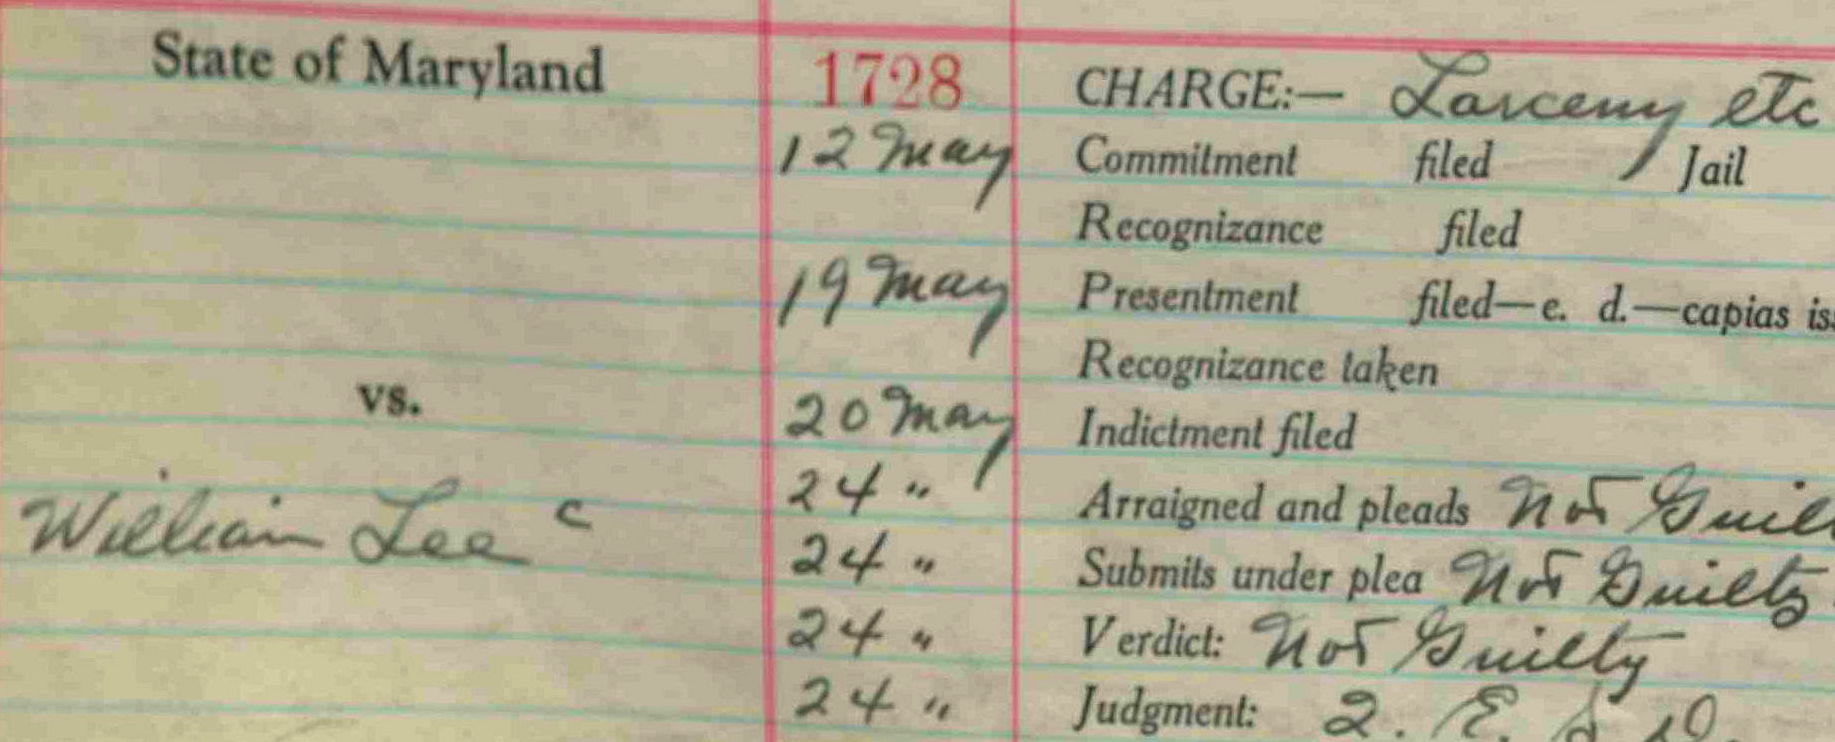 State of Maryland 1728 CHARGE:— Larceny etc
12 May Commitment filed Jail
Recognizance filed
19 May Presentment filed—e. d.—capias is
Recognizance taken
vs. 20 May Indictment filed
24 " Arraigned and pleads Not Guil
William Lee c 24 " Submits under plea Not Guilty
24 " Verdict: Not Guilty
24 " Judgment: